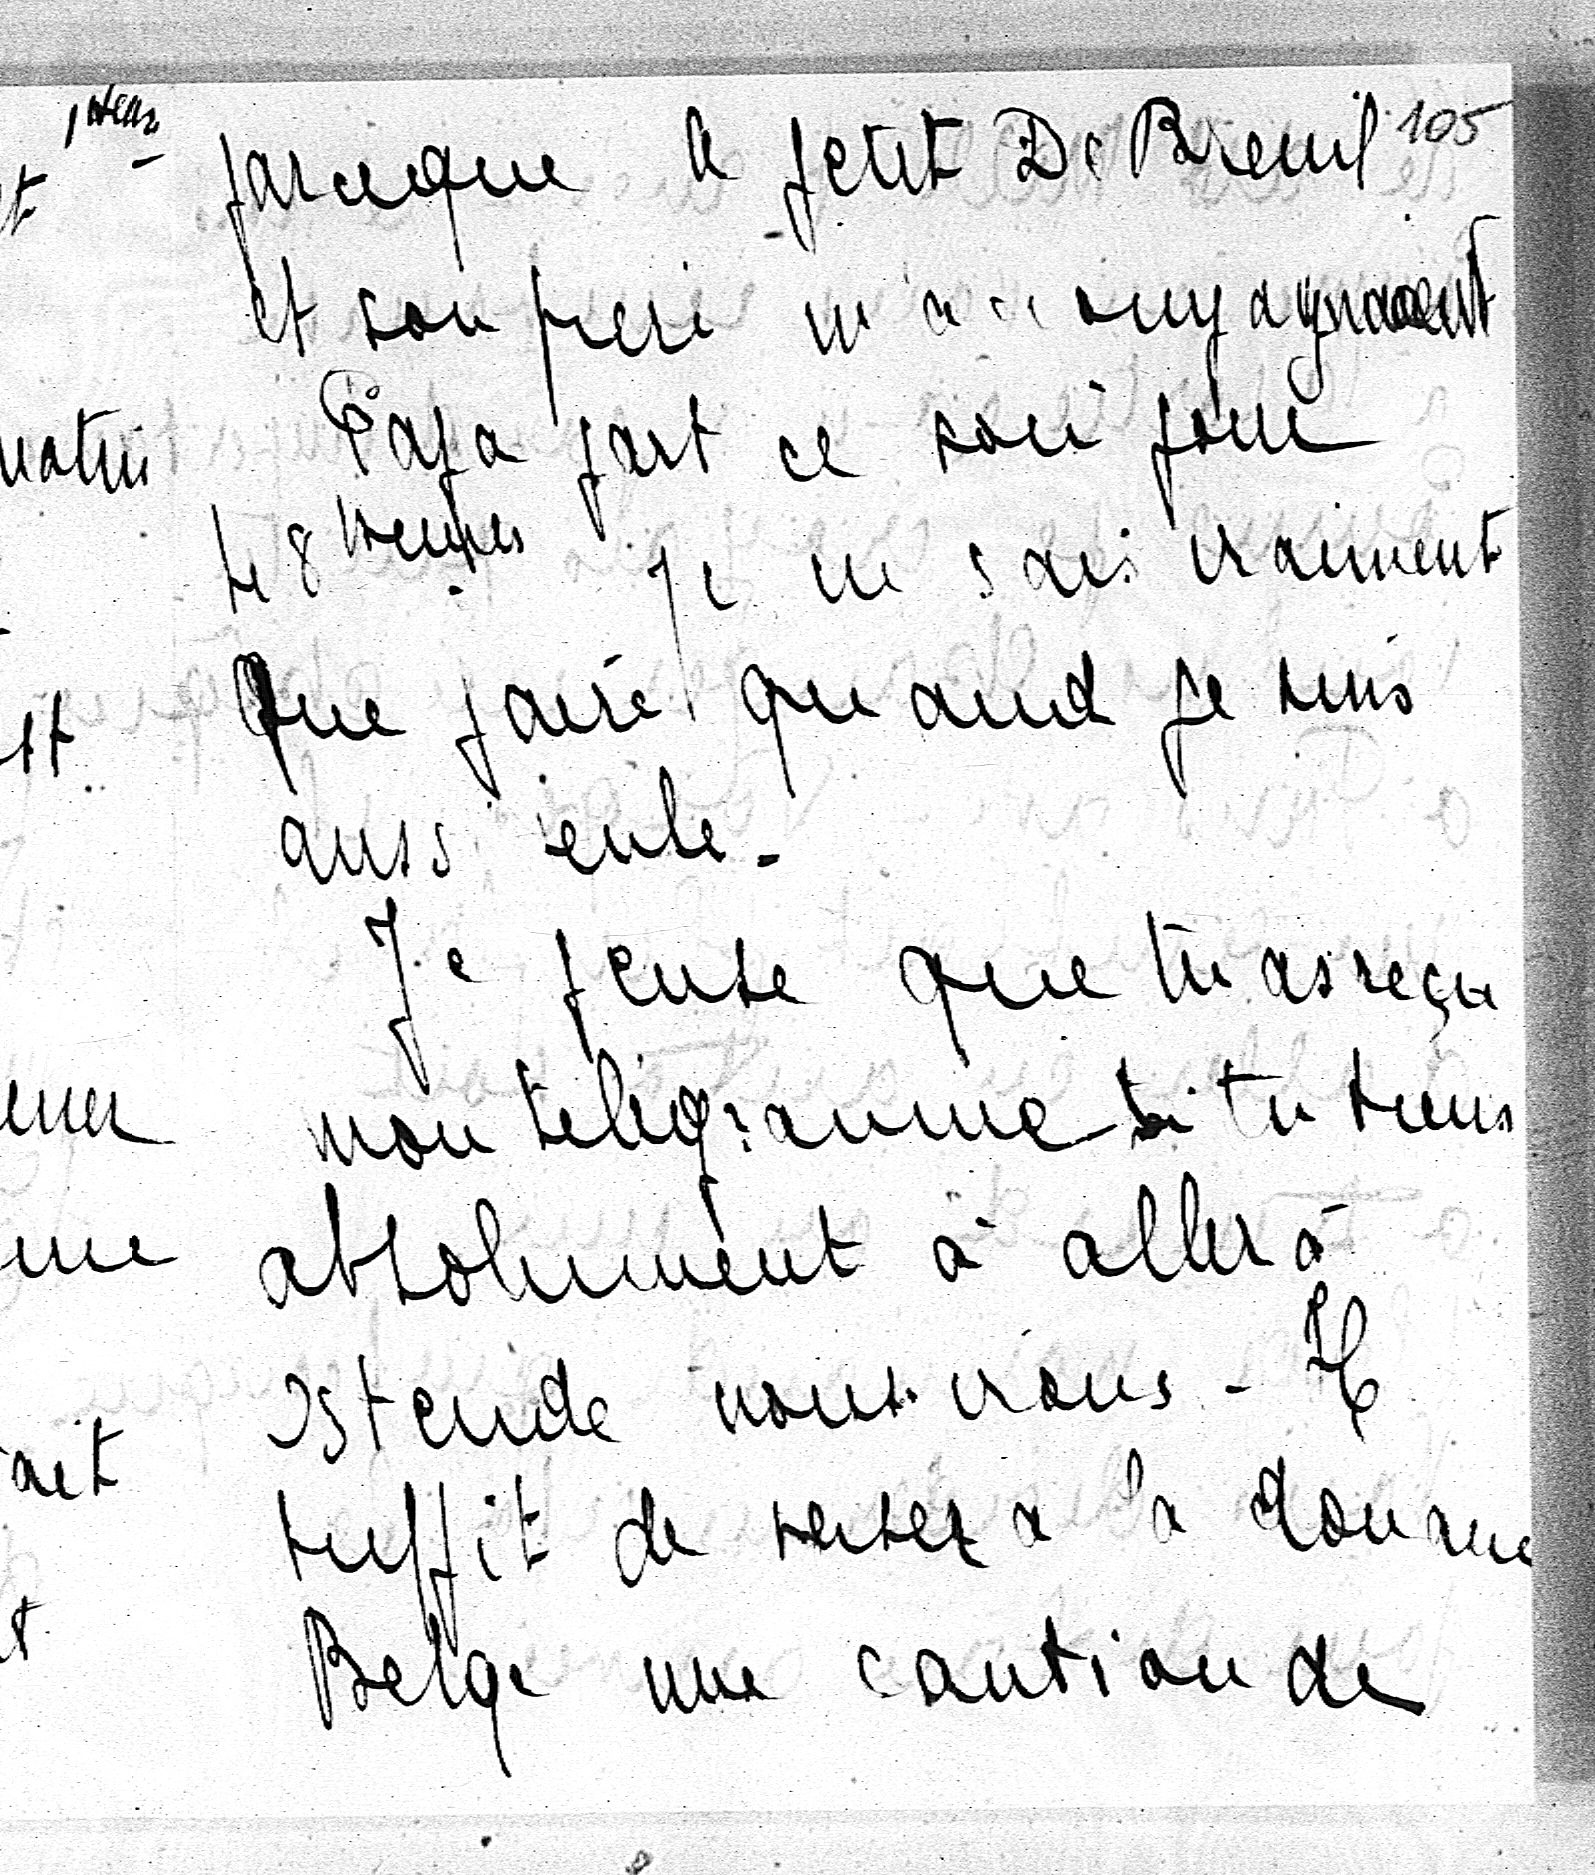 105
parceque le petit De Breuil
et son frere m'accompagnaient
Papa part ce soir pour
48 heures. Je ne sais vraiment
que faire quand je suis
aussi seule.
Je pense que tu as reçu
mon telegramme si tu tiens
absolument à aller à
Ostende nous irons - Il
suffit de verser a la douane
Belge une caution de